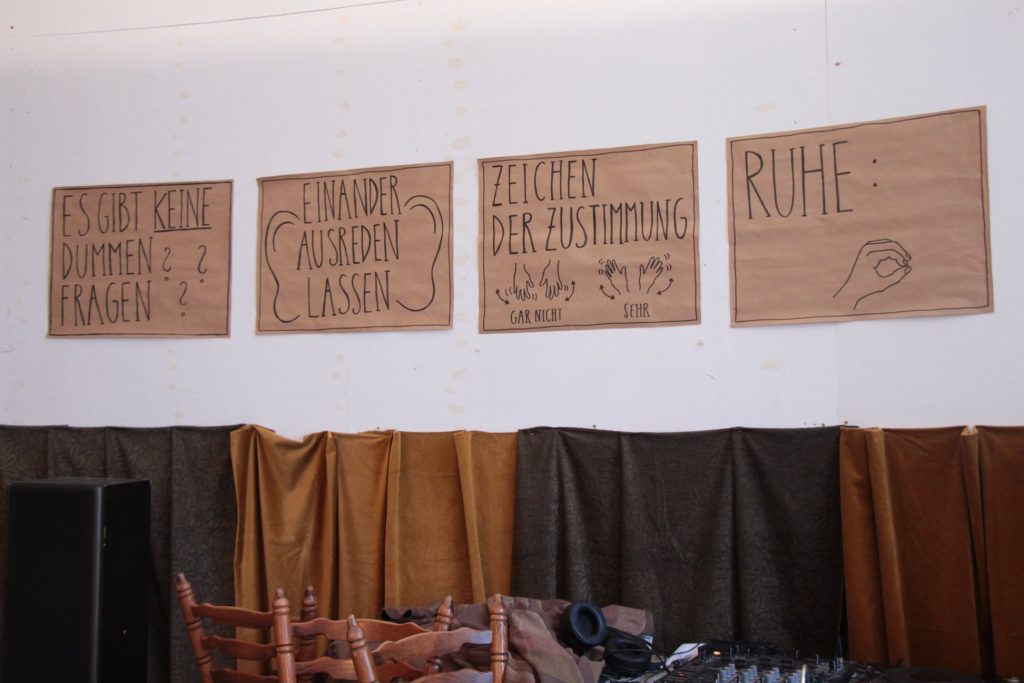 ES GIBT KEINE
DUMMEN ? ?
FRAGEN ?
EINANDER
AUSREDEN
LASSEN
ZEICHEN
DER ZUSTIMMUNG
GAR NICHT
SEHR
RUHE: